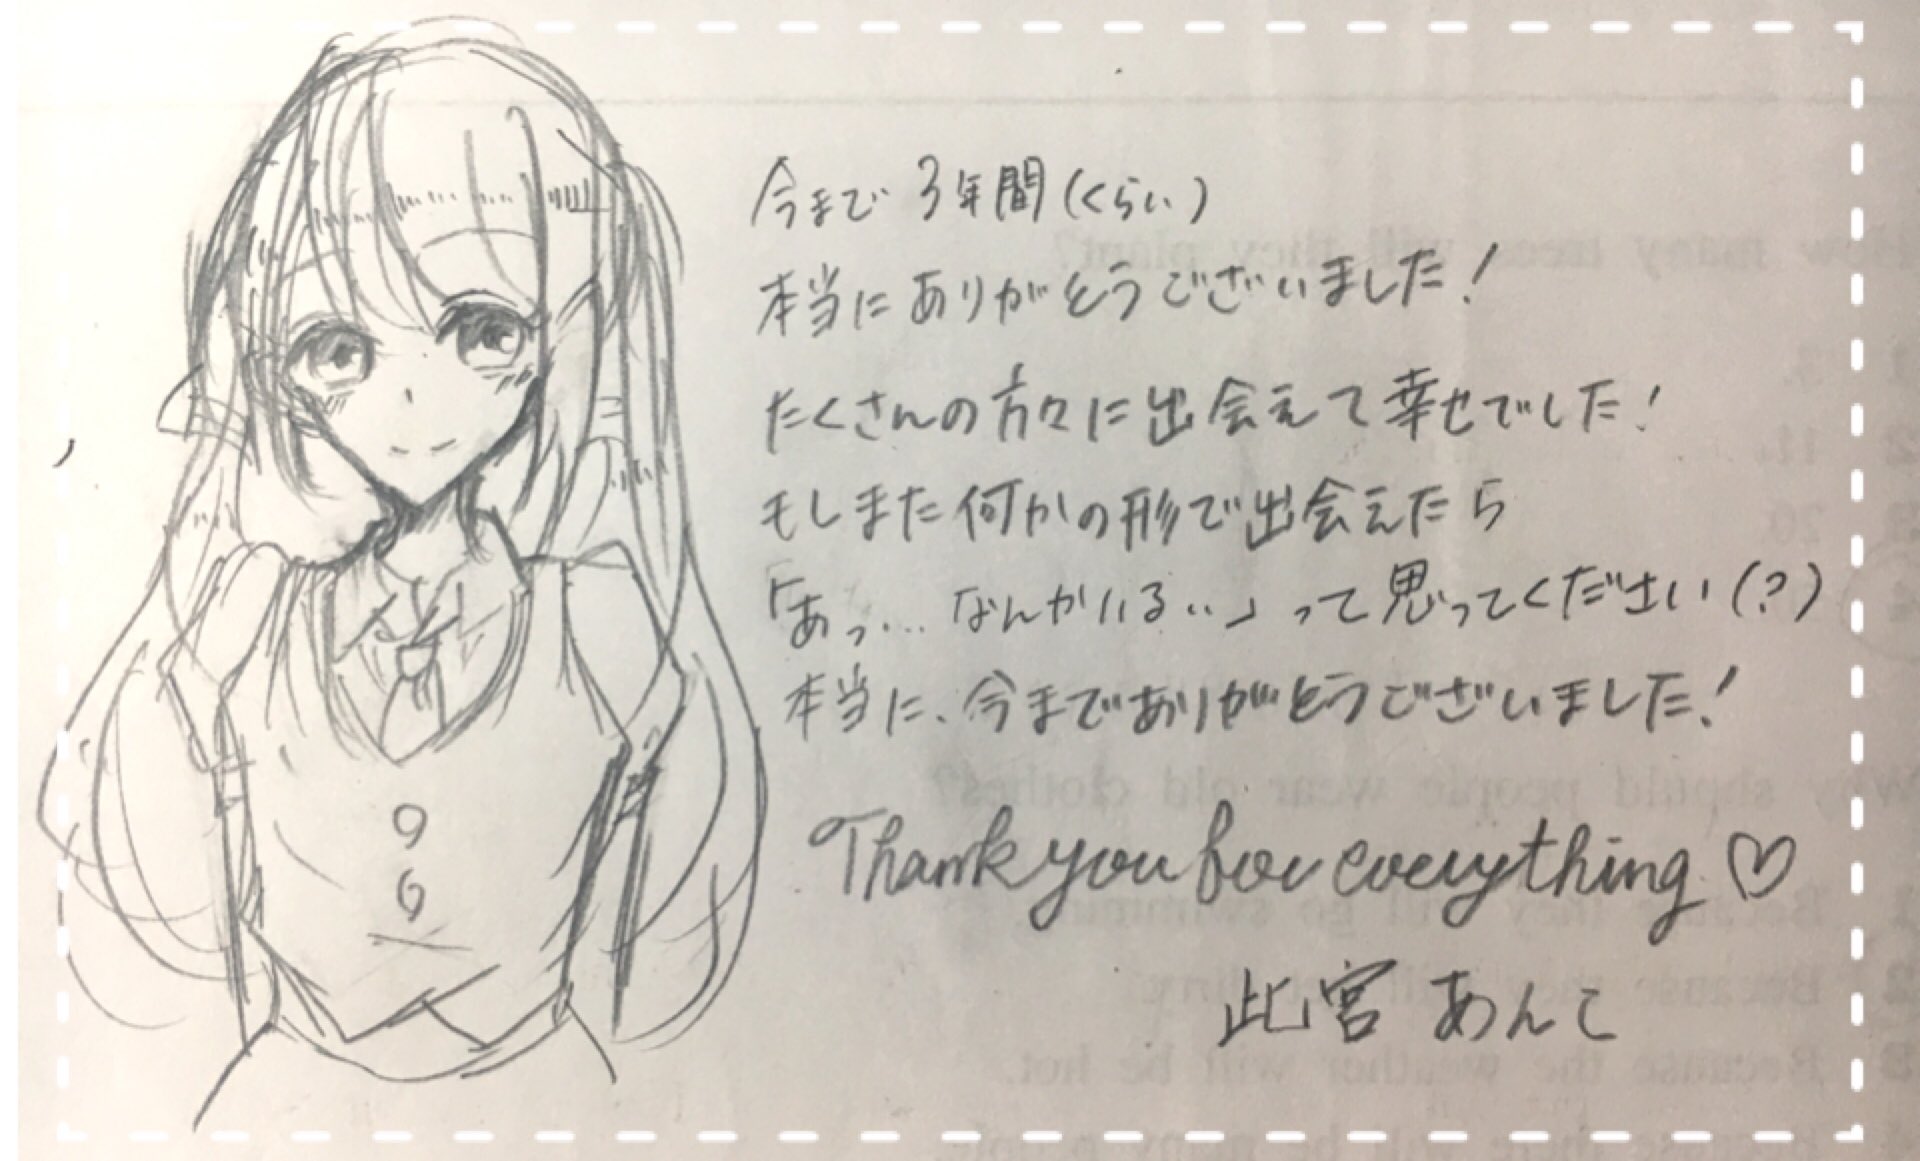 今まで3年間(くらい)
本当にありがとうございました!
たくさんの方々に出会えて幸せでした!
もしまた何かの形で出会えたら
「あっ... なんかいる..」って思ってください(?)
本当に、今までありがとうございました!
Thank you for everything ♡
此宮 あんこ
How many trees will they plant?
Why should people wear old clothes?
3 Because the weather will be hot.